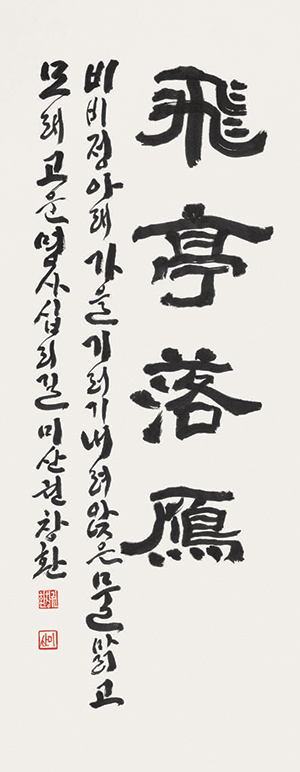 飛亭落鴈
비비정 아래 가을 기러기 내려앉은 물 맑고
모래 고운 명사십리길 미산 현창환